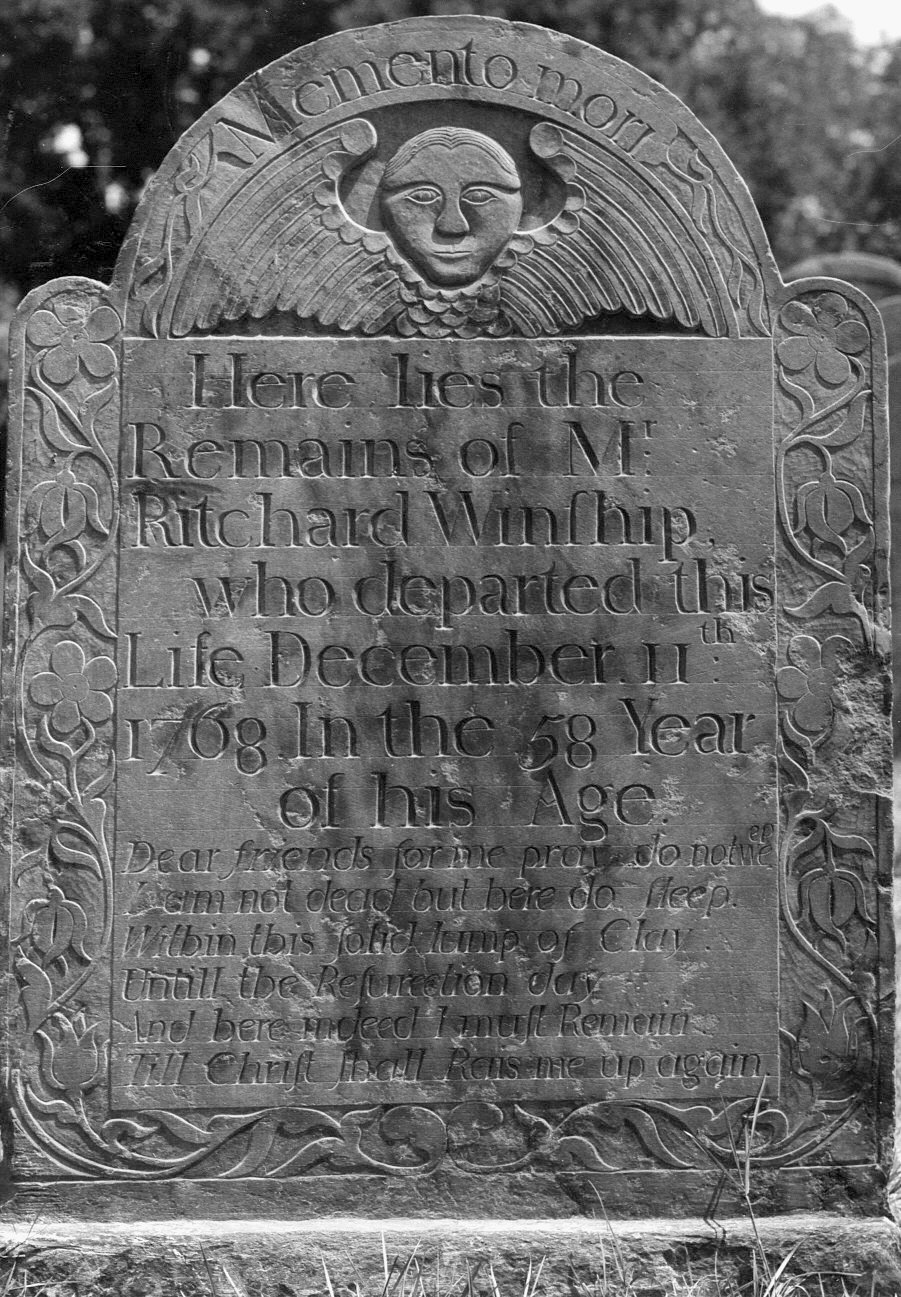 Memento mori
Here lies the
Remains of Mr.
Ritchard Winſhip.
who departed this
Life December. 11th.
1768 In the 58 Year
of his Age
Dear friends for me pray do not weep
I am not dead but here do ſleep.
Within this ſolid lump of Clay.
Untill the Reſurection day
And here indeed I muſt Remain
Till Chriſt ſhall Rais me up again